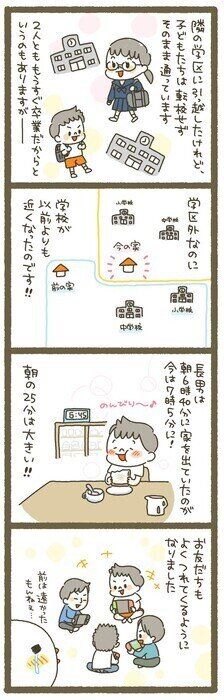 隣の学区に引越したけれど、
子どもたちは転校せず
そのまま通っています
2人とももうすぐ卒業だからと
いうのもありますが──
学区外なのに
小学校
中学校
今の家
前の家
小学校
中学校
学校が
以前よりも
近くなったのです!!
長男は
朝6時40分に家を出ていたのが
今は7時5分に!
6:45
のんびり〜♪
朝の25分は大きい!!
お友だちも
よくつれてくるように
なりました
前は遠かった
もんねぇ…